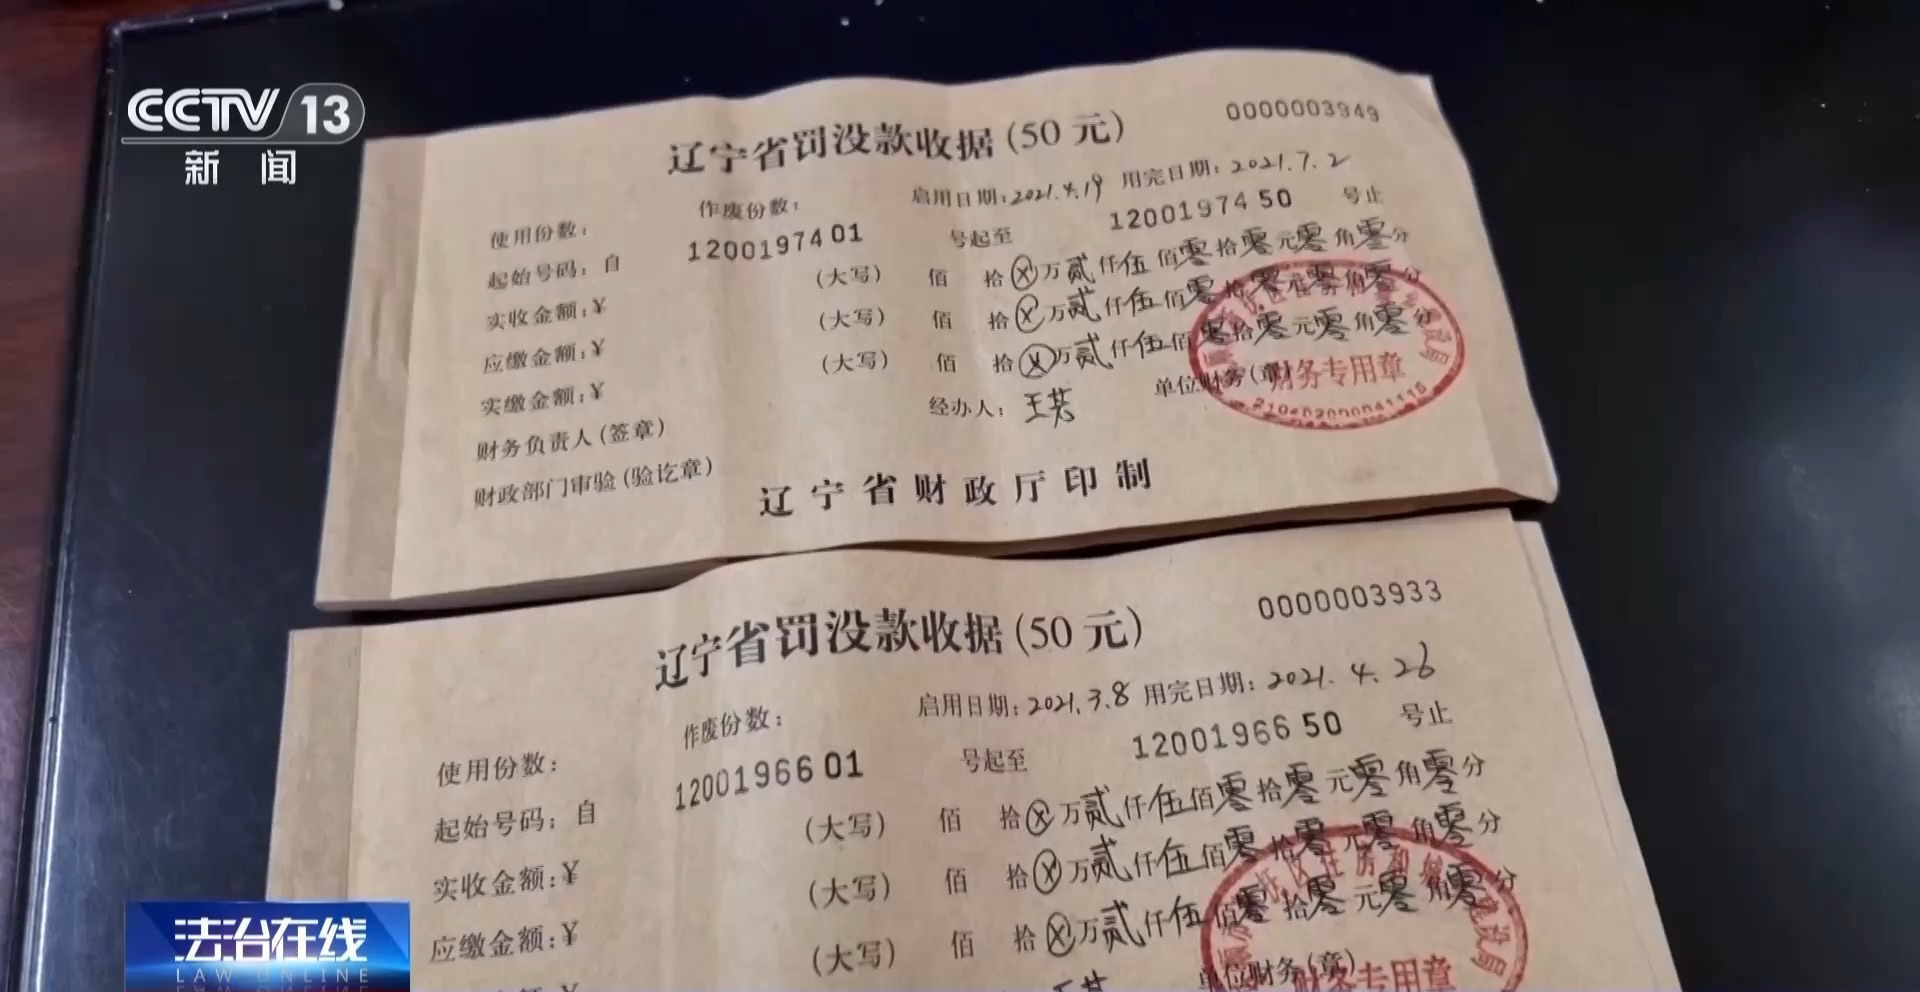 CCTV 13
新闻
辽宁省罚没款收据(50元)
0000003949
使用份数:
作废份数:
启用日期:2021.4.19 用完日期:2021.7.2
起始号码:自 1200197401 号起至 1200197450 号止
实收金额:¥ (大写) 佰 拾ⓧ万贰仟伍佰零拾零元零角零分
应缴金额:¥ (大写) 佰 拾ⓧ万贰仟伍佰零拾零元零角零分
实缴金额:¥ (大写) 佰 拾ⓧ万贰仟伍佰零拾零元零角零分
财务负责人(签章) 经办人: 王 单位财务(章)
财务专用章
财政部门审验(验讫章)
辽宁省财政厅印制
辽宁省罚没款收据(50元)
0000003933
使用份数:
作废份数:
启用日期:2021.3.8 用完日期:2021.4.26
起始号码:自 1200196601 号起至 1200196650 号止
实收金额:¥ (大写) 佰 拾ⓧ万贰仟伍佰零拾零元零角零分
应缴金额:¥ (大写) 佰 拾ⓧ万贰仟伍佰零拾零元零角零分
(大写) 佰 拾ⓧ万贰仟伍佰零拾零元零角零分
单位财务(章)
财务专用章
法治在线
LAW ONLINE